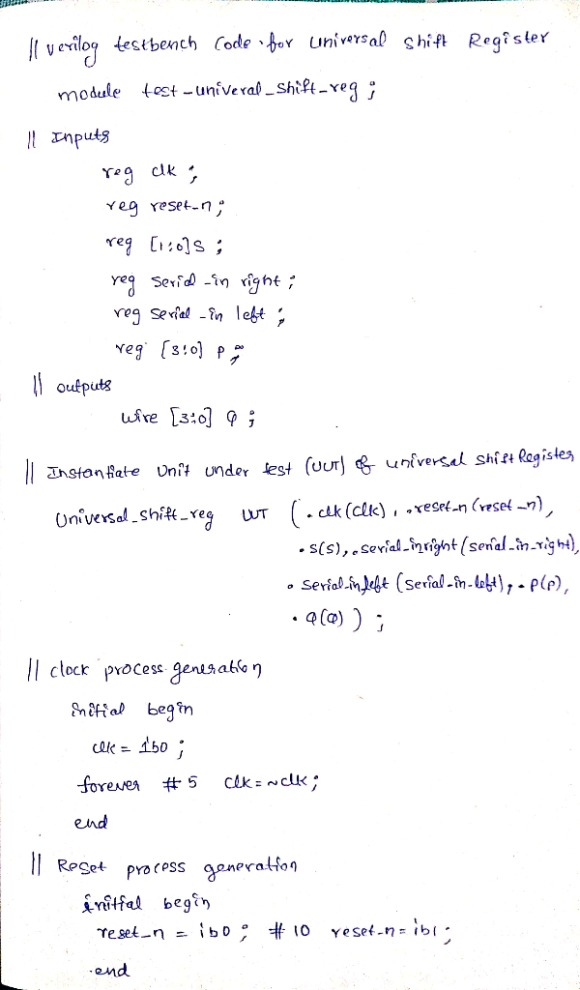 // verilog testbench Code for universal shift Register
module test-univeral_shift-reg ;
// Inputs
reg clk ;
reg reset-n ;
reg [1:0]S ;
reg serial -in right ;
reg serial -in left ;
reg [3:0] P ;
// outputs
wire [3:0] Q ;
// Instantiate Unit under test (UUT) of universal shift Register
Universal_shift_reg UUT ( . clk (clk) , .reset-n (reset -n),
. S(S), . serial-inright (serial-in-right),
. serial-in left (serial-in-left), . P(P),
. Q(Q) ) ;
// clock process generation
initial begin
clk = 1'b0 ;
forever # 5 clk = ~clk ;
end
// Reset process generation
initial begin
reset_n = ibo ; # 10 reset-n = ib1 ;
end